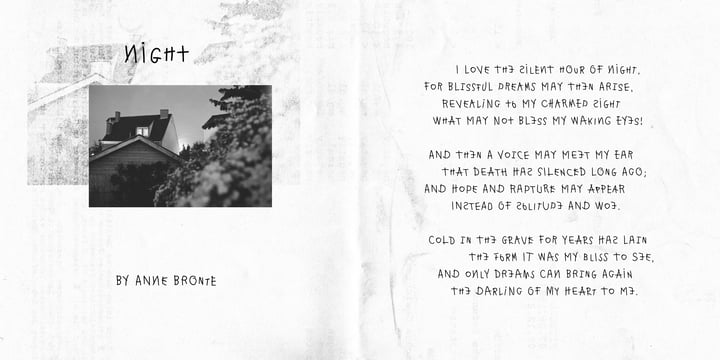 NIGHT
BY ANNE BRONTE
I LOVE THE SILENT HOUR OF NIGHT,
FOR BLISSFUL DREAMS MAY THEN ARISE,
REVEALING TO MY CHARMED SIGHT
WHAT MAY NOT BLESS MY WAKING EYES!
AND THEN A VOICE MAY MEET MY EAR
THAT DEATH HAS SILENCED LONG AGO;
AND HOPE AND RAPTURE MAY APPEAR
INSTEAD OF SOLITUDE AND WOE.
COLD IN THE GRAVE FOR YEARS HAS LAIN
THE FORM IT WAS MY BLISS TO SEE,
AND ONLY DREAMS CAN BRING AGAIN
THE DARLING OF MY HEART TO ME.